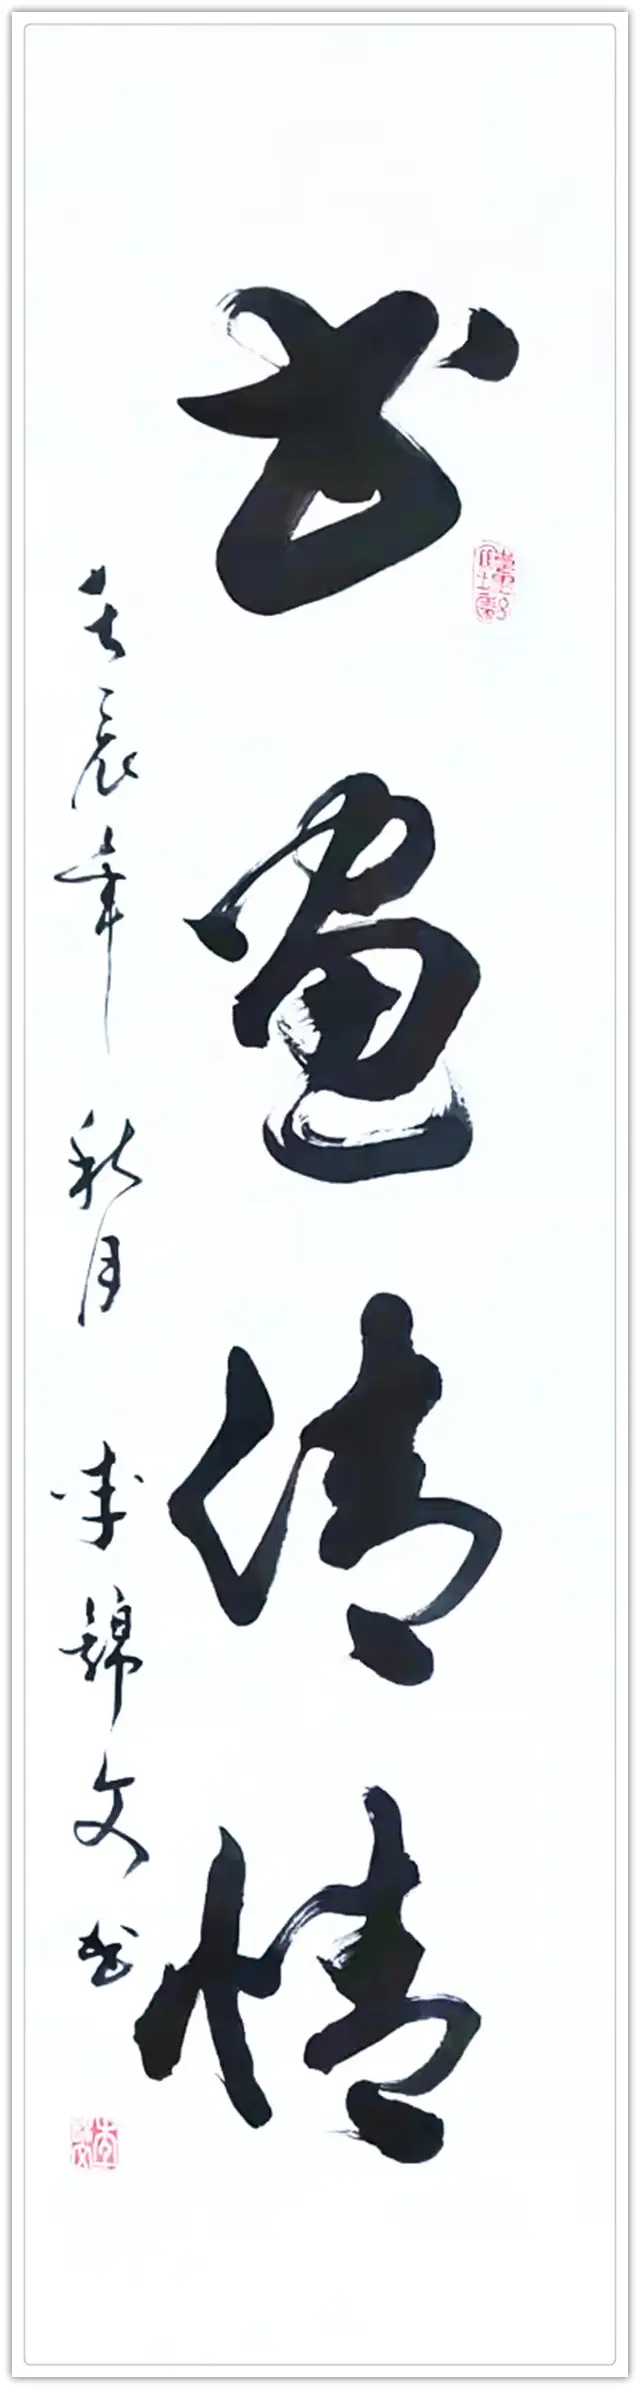 书画清情
壬辰年 秋月 李錦文书